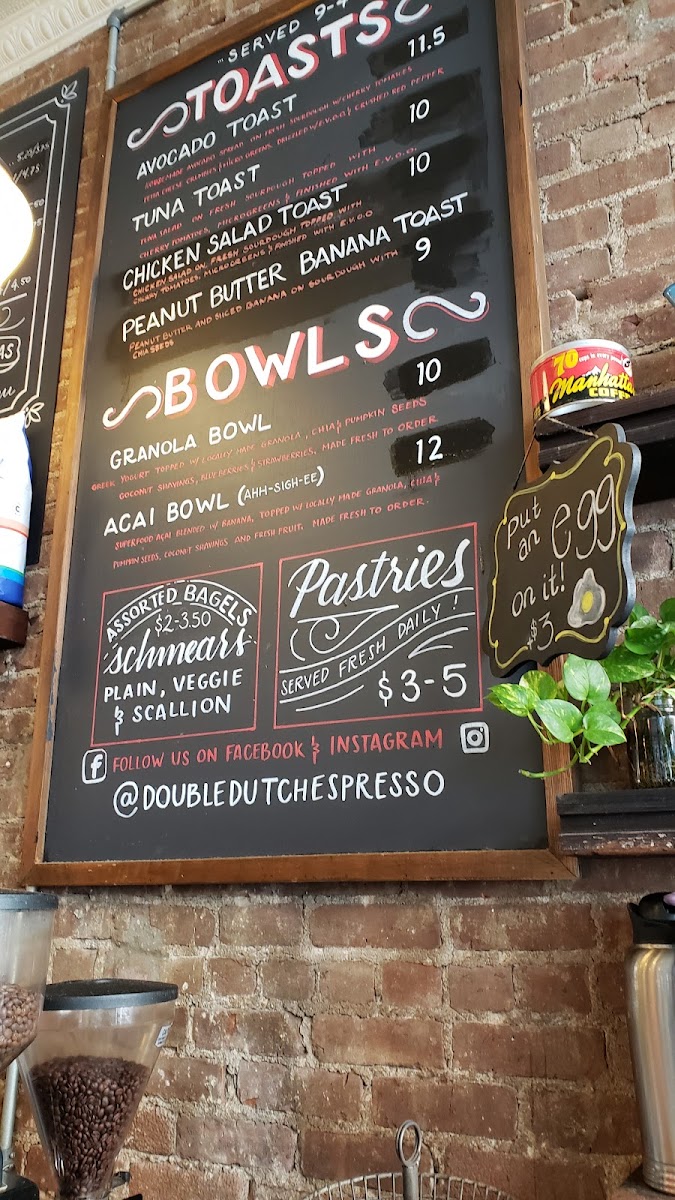 ... SERVED 9-4
TOASTS
AVOCADO TOAST 11.5
HOUSEMADE AVOCADO SPREAD ON FRESH SOURDOUGH W/CHERRY TOMATOES
FETA CHEESE CRUMBLES & MICRO GREENS. DRIZZLED W/E.V.O.O & CRUSHED RED PEPPER
TUNA TOAST 10
TUNA SALAD ON FRESH SOURDOUGH TOPPED WITH
CHERRY TOMATOES, MICROGREENS & FINISHED WITH E.V.O.O.
CHICKEN SALAD TOAST 10
CHICKEN SALAD ON FRESH SOURDOUGH TOPPED WITH
CHERRY TOMATOES, MICROGREENS & FINISHED WITH E.V.O.O
PEANUT BUTTER BANANA TOAST
9
PEANUT BUTTER AND SLICED BANANA ON SOURDOUGH WITH
CHIA SEEDS
BOWLS
GRANOLA BOWL 10
GREEK YOGURT TOPPED W/ LOCALLY MADE GRANOLA, CHIA & PUMPKIN SEEDS
COCONUT SHAVINGS, BLUEBERRIES & STRAWBERRIES. MADE FRESH TO ORDER
ACAI BOWL (AHH-SIGH-EE) 12
SUPERFOOD AÇAI BLENDED W/ BANANA, TOPPED W/ LOCALLY MADE GRANOLA, CHIA &
PUMPKIN SEEDS, COCONUT SHAVINGS AND FRESH FRUIT. MADE FRESH TO ORDER.
ASSORTED BAGELS
$2-3.50
schmears
PLAIN, VEGGIE
& SCALLION
Pastries
SERVED FRESH DAILY!
$3-5
FOLLOW US ON FACEBOOK & INSTAGRAM
@DOUBLEDUTCHESPRESSO
70
Manhatta
COFF
put
an egg
on it!
$3
4.50